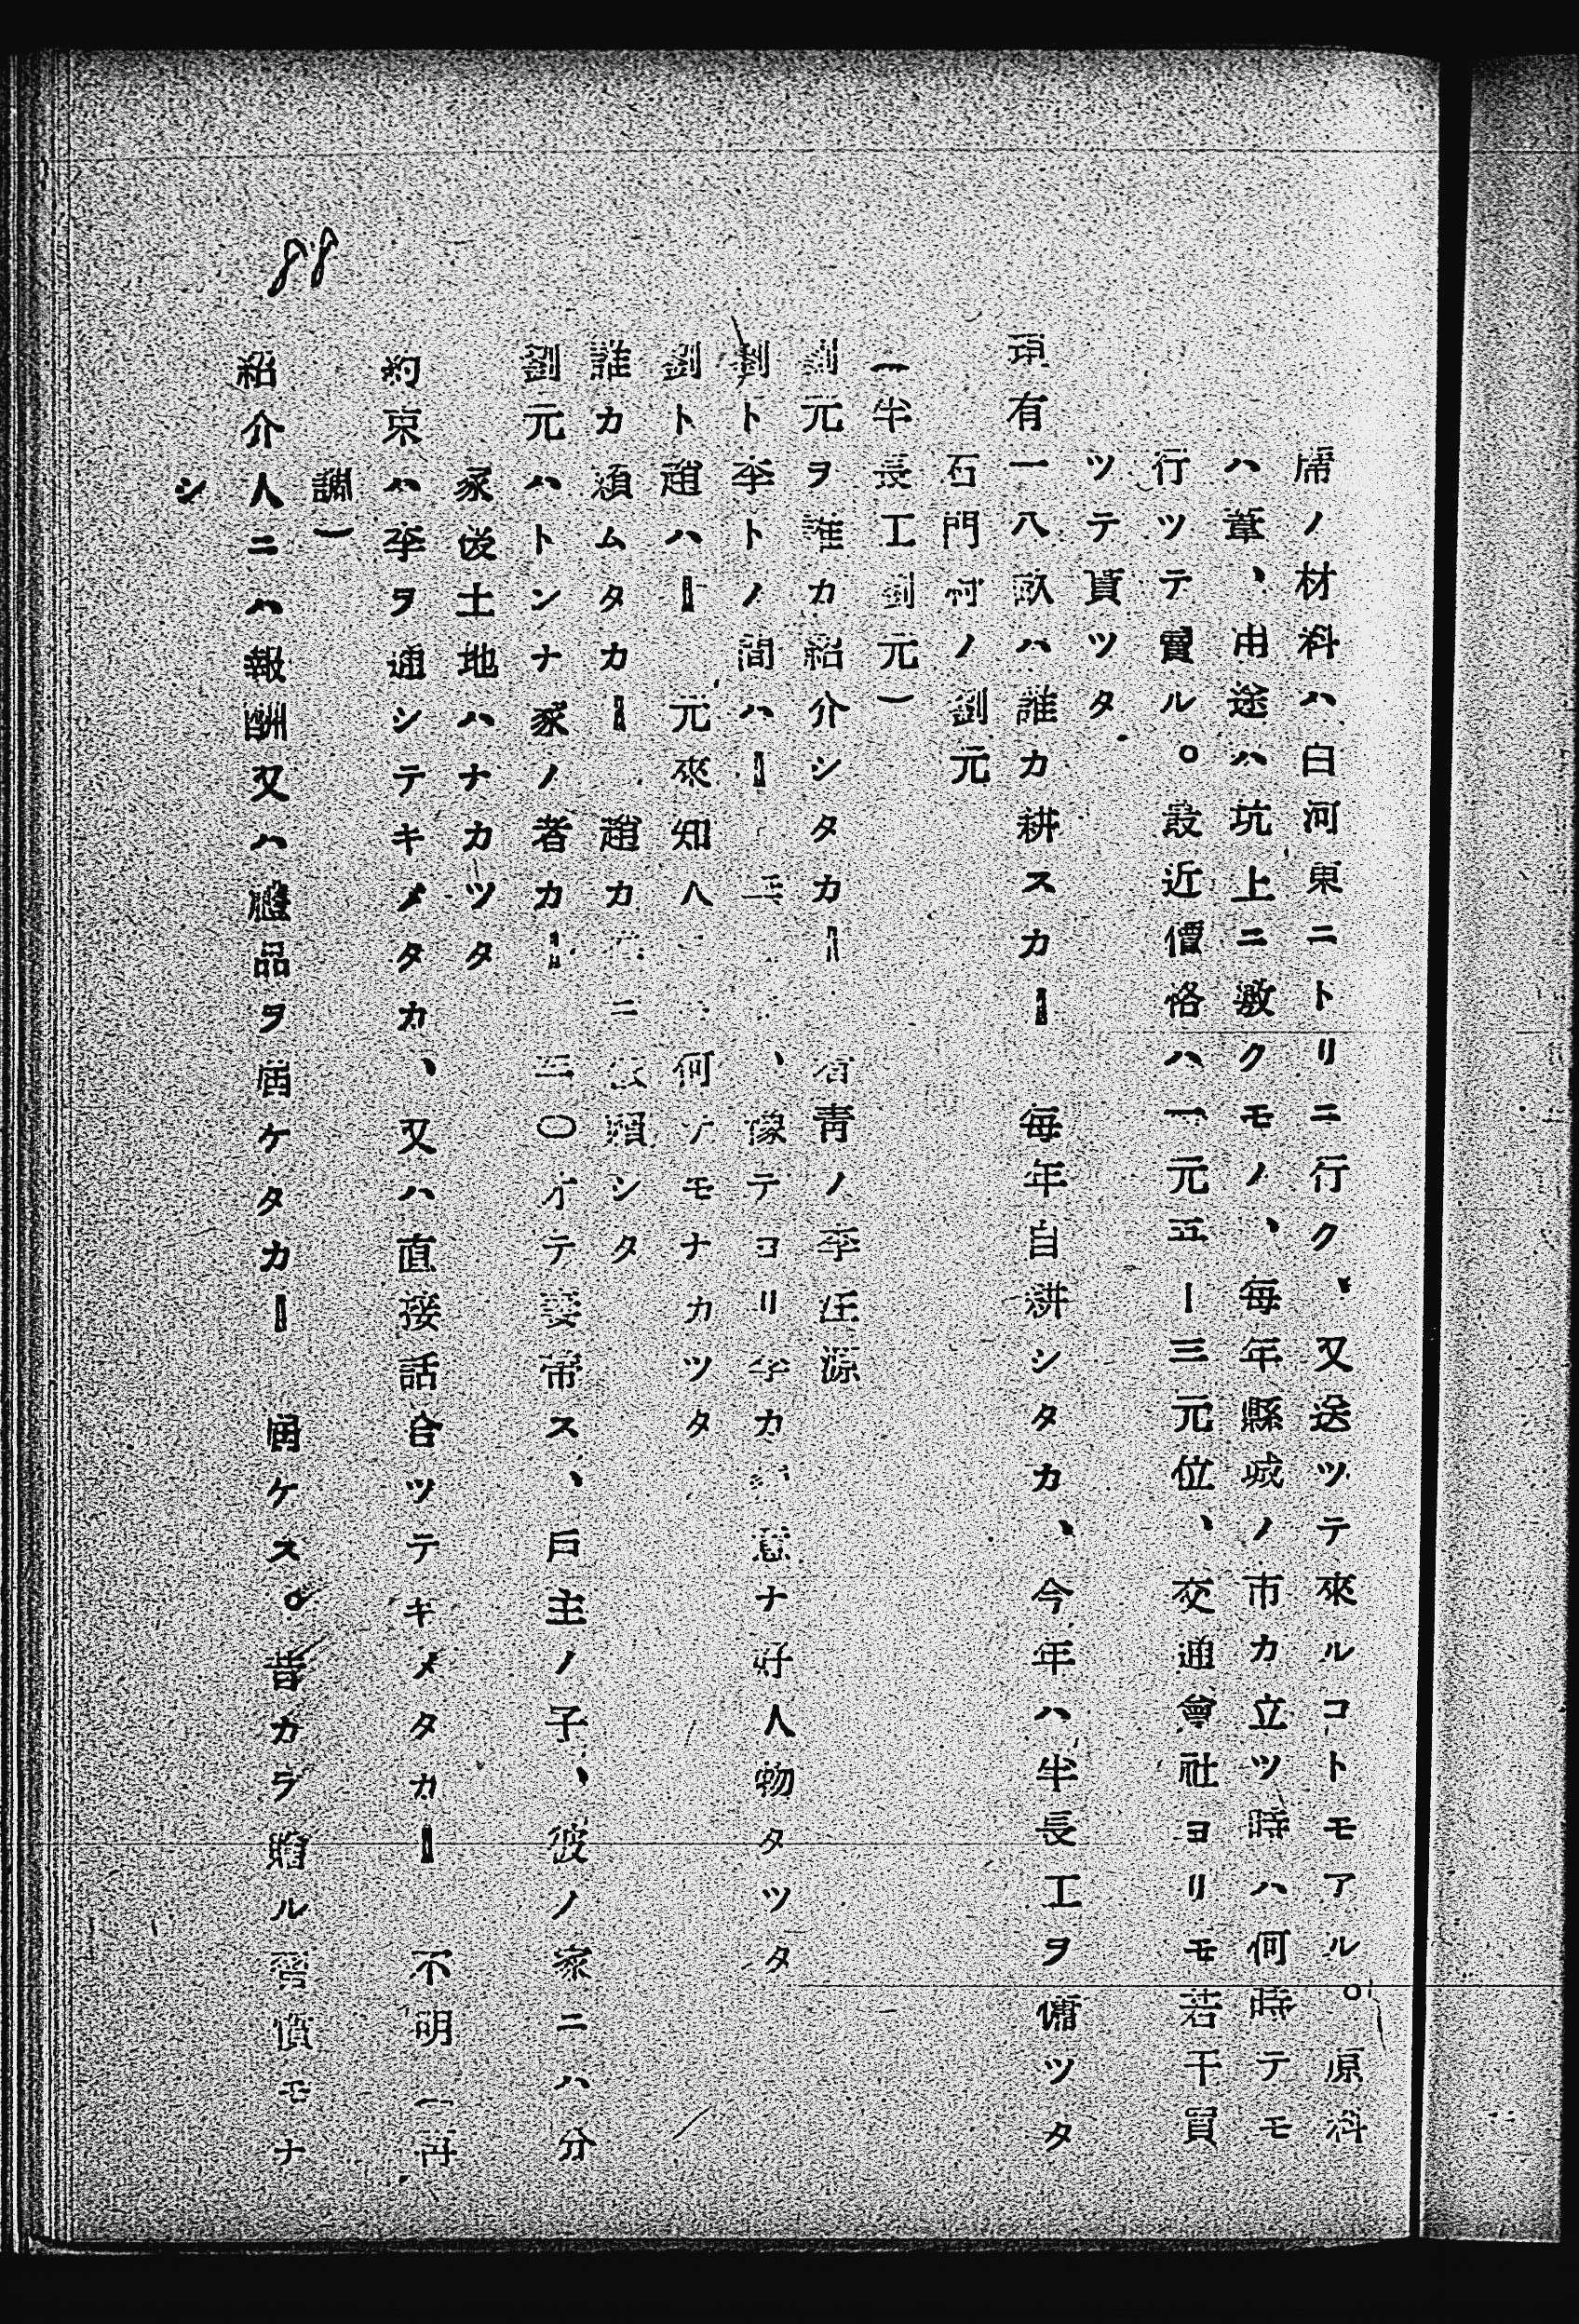 席ノ材料ハ白河東ニトリニ行ク、又送ツテ來ルコトモアル。原料
ハ葦、用途ハ坑上ニ敷クモノ、每年縣城ノ市カ立ツ時ハ何時テモ
行ツテ賣ル。最近價格ハ一元五—三元位、交通會社ヨリモ若干買
ツテ貰ツタ
現有一八畝ハ誰カ耕スカ— 每年自耕シタカ、今年ハ半長工ヲ傭ツタ
石門村ノ劉元
(半長工劉元)
劉元ヲ誰カ紹介シタカ— 靑ノ李注源
劉ト李トノ間ハ— 、テヨリ李カナ好人物タツタ
劉ト趙ハ— 元來知人 何テモナカツタ
誰カ頼ムタカ— 趙カニ依頼シタ
劉元ハトンナ家ノ者カ— 三〇才テ妻帶ス、戶主ノ子、彼ノ家ニハ分
家後土地ハナカツタ
約束ハ李ヲ通シテキメタカ、又ハ直接話合ツテキメタカ— 不明(再
調)
紹介人ニハ報酬又ハ禮品ヲ届ケタカ— 届ケス。昔カラ贈ル習慣モナ
シ
88